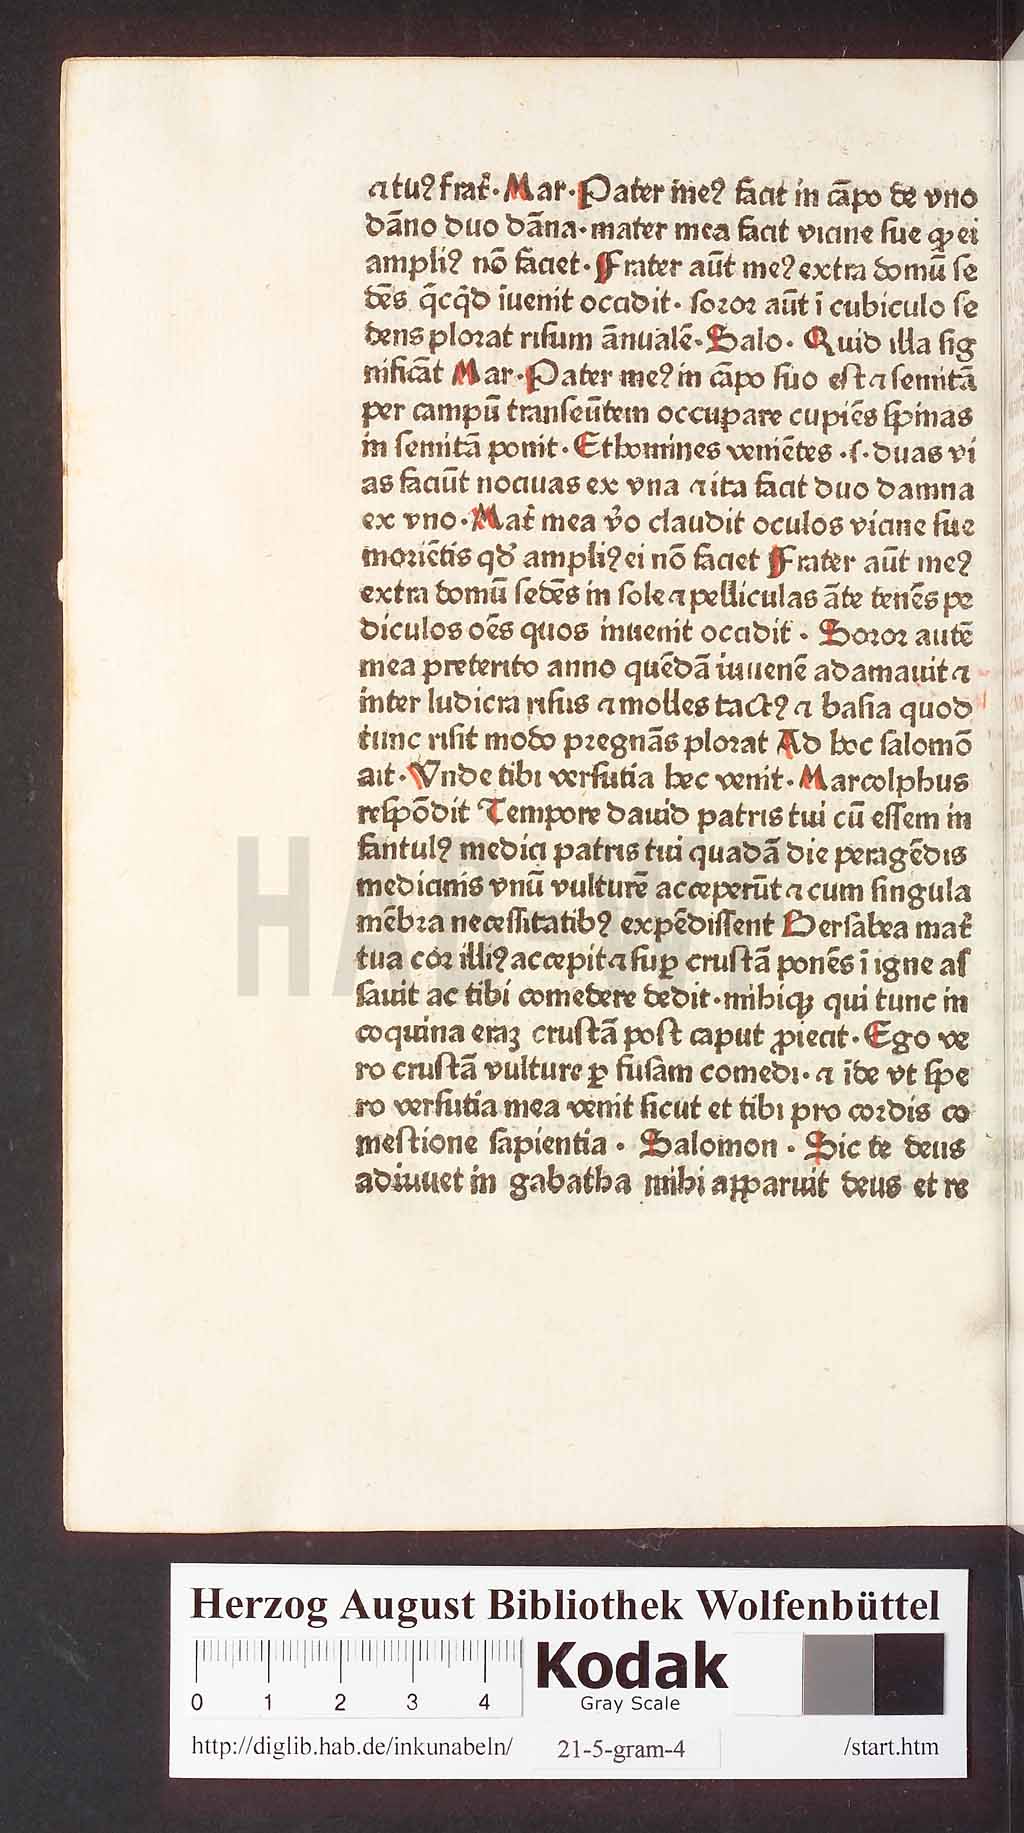 ⁊ tuꝰ frat̃. Mar. Pater meꝰ facit in cãpo de vno
dãno duo dãna. mater mea facit vicine sue qꝙ ei
ampliꝰ nõ faciet. Frater aũt meꝰ extra domũ se
dẽs q̃cq̃d ĩuenit occidit. soror aũt ĩ cubiculo se
dens plorat risum ãnualẽ. Salo. Quid illa sig
nificãt Mar. Pater meꝰ in cãpo suo est ⁊ semitã
per campũ transeũtem occupare cupiẽs spinas
in semitã ponit. Et homines veniẽtes .s. duas vi
as faciũt nociuas ex vna ⁊ ita facit duo damna
ex vno. Mat̃ mea ṽo claudit oculos vicine sue
moriẽtis qđ ampliꝰ ei nõ faciet Frater aũt meꝰ
extra domũ sedẽs in sole ⁊ pelliculas ãte tenẽs pe
diculos oẽs quos inuenit occidit. Soror autẽ
mea preterito anno quẽdã iuuenẽ adamauit ⁊
inter ludicra risus ⁊ molles tactꝰ ⁊ basia quod
tunc risit modo pregnãs plorat Ad hoc salomõ
ait. Vnde tibi versutia hec venit. Marcolphus
respõdit Tempore dauid patris tui cũ essem in
fantulꝰ medici patris tui quadã die peragẽdis
medicinis vnũ vulturẽ acceperũt ⁊ cum singula
mẽbra necessitatibꝰ expẽdissent Bersabea mat̃
tua cor illiꝰ accepit ⁊ suꝑ crustã ponẽs ĩ igne as
sauit ac tibi comedere dedit. mihiqꝫ qui tunc in
coquina eraꝫ crustã post caput ꝓiecit. Ego ve
ro crustã vulture ꝑ fusam comedi. ⁊ ĩde vt spe
ro versutia mea venit sicut et tibi pro cordis co
mestione sapientia. Salomon. Sic te deus
adiuuet in gabatha mihi apparuit deus et re
HAB-WF
Herzog August Bibliothek Wolfenbüttel
0 1 2 3 4
Kodak
Gray Scale
http://diglib.hab.de/inkunabeln/ 21-5-gram-4 /start.htm